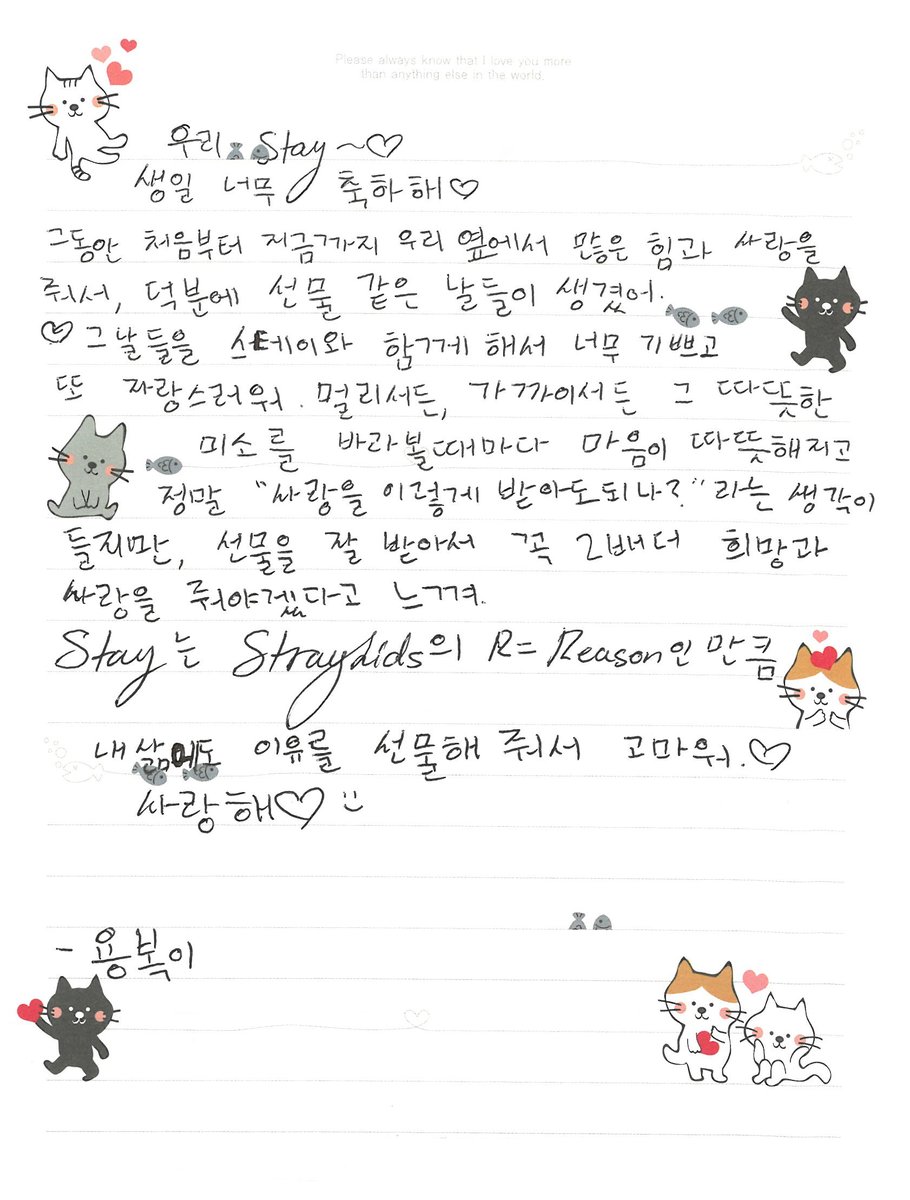 Please always know that I love you more
than anything else in the world.
우리 Stay ~♡
생일 너무 축하해♡
그동안 처음부터 지금까지 우리 옆에서 많은 힘과 사랑을
줘서, 덕분에 선물 같은 날들이 생겼어.
♡ 그날들을 스테이와 함께 해서 너무 기쁘고
또 자랑스러워. 멀리서든, 가까이서든 그 따뜻한
미소를 바라볼때마다 마음이 따뜻해지고
정말 "사랑을 이렇게 받아도되나?" 라는 생각이
들지만, 선물을 잘 받아서 꼭 2배더 희망과
사랑을 줘야겠다고 느껴.
Stay는 Straykids의 R= Reason인 만큼
내 삶에도 이유를 선물해 줘서 고마워.♡
사랑해♡ :)
- 용복이